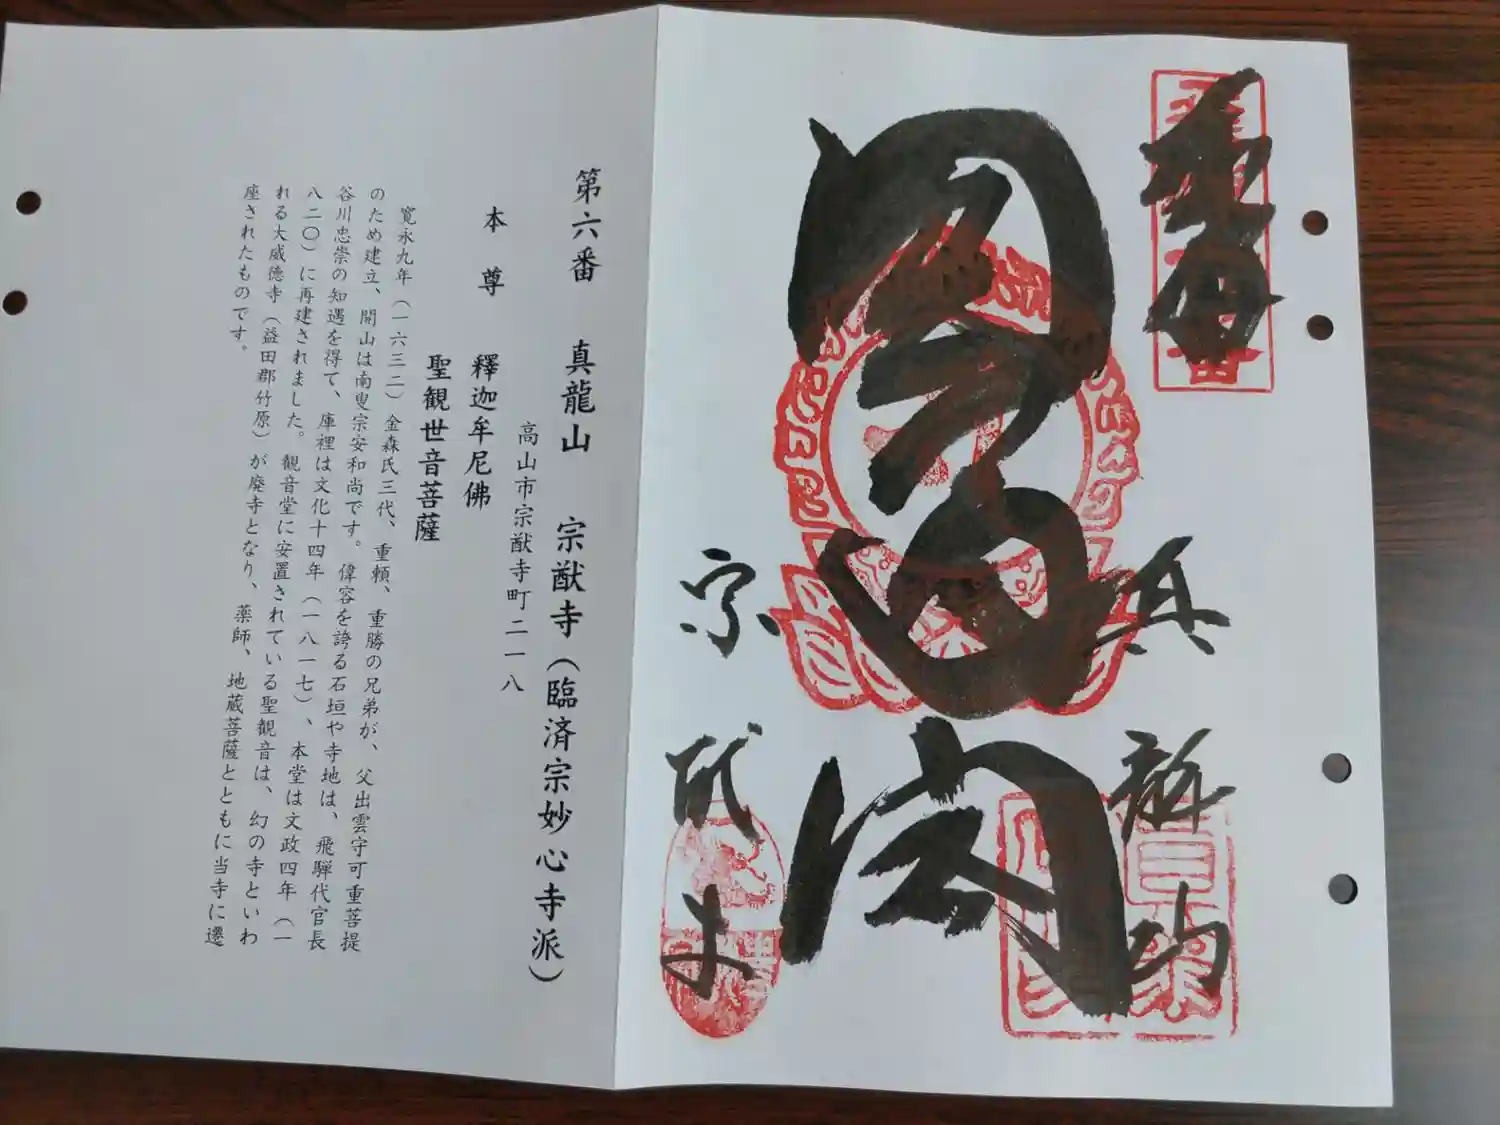 奉拝
圓通閣
真龍山
宗猷寺
第六番　真龍山　宗猷寺（臨済宗妙心寺派）
高山市宗猷寺町二一八
本尊　釋迦牟尼佛
聖観世音菩薩
寛永九年（一六三二）金森氏三代、重頼、重勝の兄弟が、父出雲守可重菩提
のため建立、開山は南叟宗安和尚です。偉容を誇る石垣や寺地は、飛騨代官長
谷川忠崇の知遇を得て、庫裡は文化十四年（一八一七）、本堂は文政四年（一
八二〇）に再建されました。観音堂に安置されている聖観音は、幻の寺といわ
れる大威徳寺（益田郡竹原）が廃寺となり、薬師、地蔵菩薩とともに当寺に遷
座されたものです。